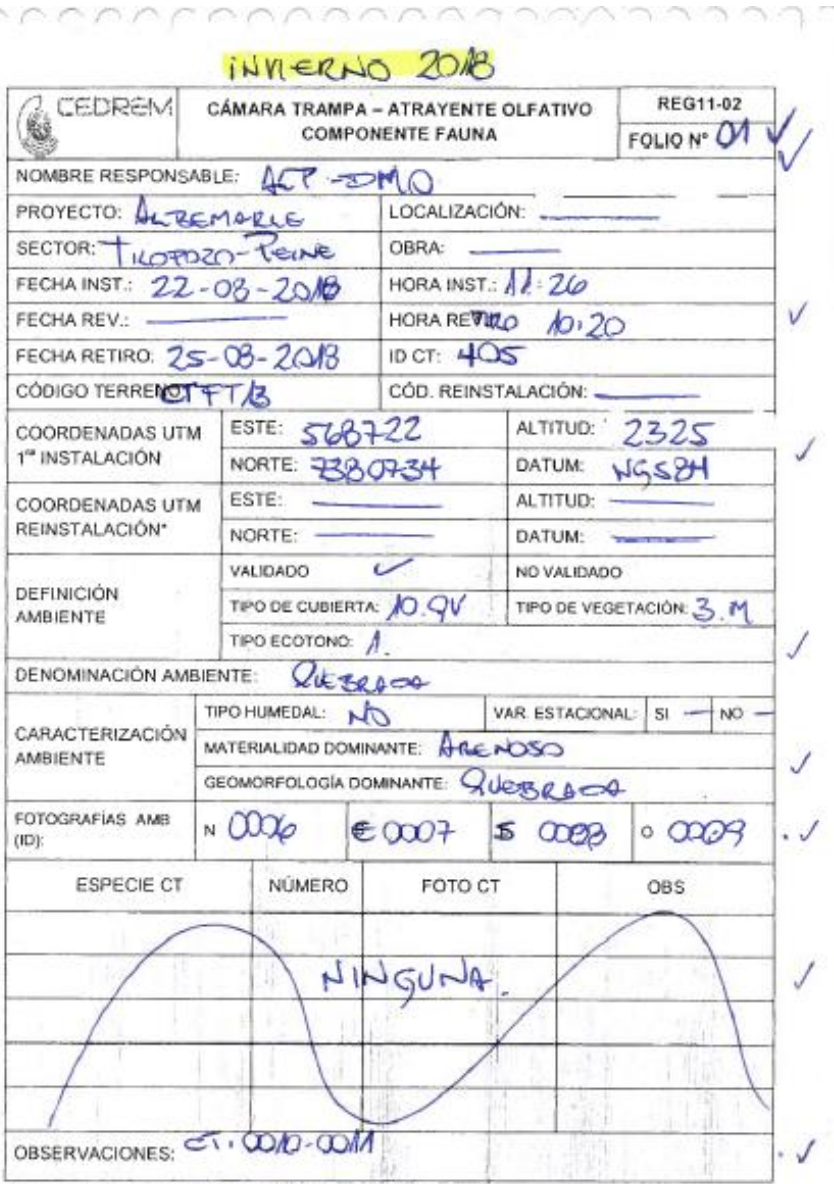 INVIERNO 2018
CEDREM
CÁMARA TRAMPA – ATRAYENTE OLFATIVO
COMPONENTE FAUNA
REG11-02
FOLIO Nº 01
NOMBRE RESPONSABLE: ACP-DMO
PROYECTO: ALBEMARLE LOCALIZACIÓN:
SECTOR: TILOPOZO-PEINE OBRA:
FECHA INST.: 22-08-2018 HORA INST.: 11:26
FECHA REV.: HORA RETIRO 10:20
FECHA RETIRO: 25-08-2018 ID CT: 405
CÓDIGO TERRENO: CTFT13 CÓD. REINSTALACIÓN:
COORDENADAS UTM
1ra INSTALACIÓN
ESTE: 568722 ALTITUD: 2325
NORTE: 7380734 DATUM: WGS84
COORDENADAS UTM
REINSTALACIÓN*
ESTE: ALTITUD:
NORTE: DATUM:
DEFINICIÓN
AMBIENTE
VALIDADO ✓ NO VALIDADO
TIPO DE CUBIERTA: 10.QV TIPO DE VEGETACIÓN: 3.M
TIPO ECOTONO: 1.
DENOMINACIÓN AMBIENTE: QUEBRADA
CARACTERIZACIÓN
AMBIENTE
TIPO HUMEDAL: NO VAR. ESTACIONAL: SI — NO —
MATERIALIDAD DOMINANTE: ARENOSO
GEOMORFOLOGÍA DOMINANTE: QUEBRADA
FOTOGRAFÍAS AMB
(ID):
N 0006 E 0007 S 0008 O 0009
ESPECIE CT NÚMERO FOTO CT OBS
NINGUNA.
OBSERVACIONES: CT. 0010-0011